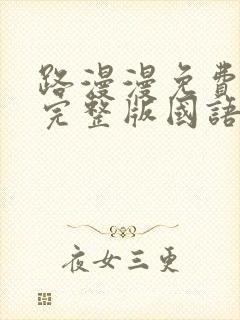 路漫漫免費
完整版國語
夜女三更